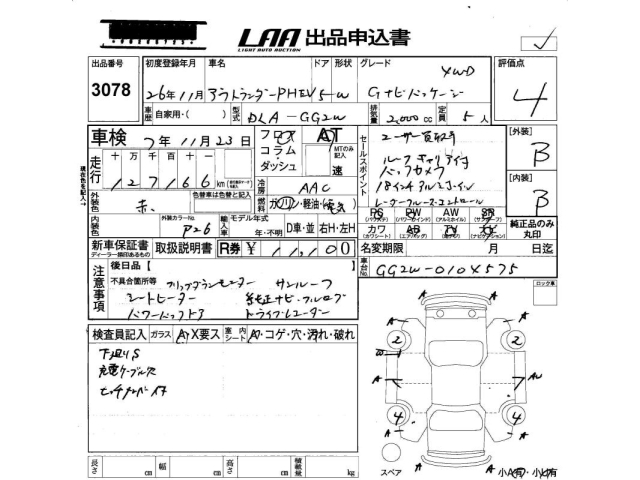 LAA 出品申込書
LIGHT AUTO AUCTION
出品番号 初度登録年月 車名 ドア 形状 グレード 評価点
3078 26年11月 アウトランダーPHEV 5-W 4WD Gナビパッケージ 4
車歴 自家用・( ) 型式 DLA-GG2W 排気量 2,000 cc 定員 5人
車検 7年11月23日 フロア コラム・ダッシュ AT MTのみ記入 速
走行 十万 万 千 百 十 一
127166 km
冷房 AAC
外装色 赤 色替車は色替と記入 燃料 ガソリン・軽油・(電気)
内装色 外装カラーNo. P26 輸入車 モデル年式 年・不明 D車・並 右H・左H
新車保証書 取扱説明書 R券 ¥
ディーラー捺印あるもの
セールスポイント ユーザー買取車
ルーフキャリア付
バックカメラ
18インチアルミホイール
レーダークルーズコントロール
PS PW AW SR
カワ AB TV ナビ
純正品のみ丸印
[外装] B
[内装] B
名変期限 月 日迄
車台No. GG2W-0104575
↑現在色を記入↑
注意事項 後日品 [
不具合箇所等
サンルーフ
シートヒーター 純正ナビ・フルセグ
パワーバックドア ドライブレコーダー
検査員記入 ガラス A・X要ス 室内シート A・コゲ・穴・汚れ・破れ
下廻りS
充電ケーブル欠
ロック車
A A
2 2
W
A AW
4 4
A A
スペア 小A(有)・小X有
長さ cm 幅 cm 高さ cm 積載量 kg